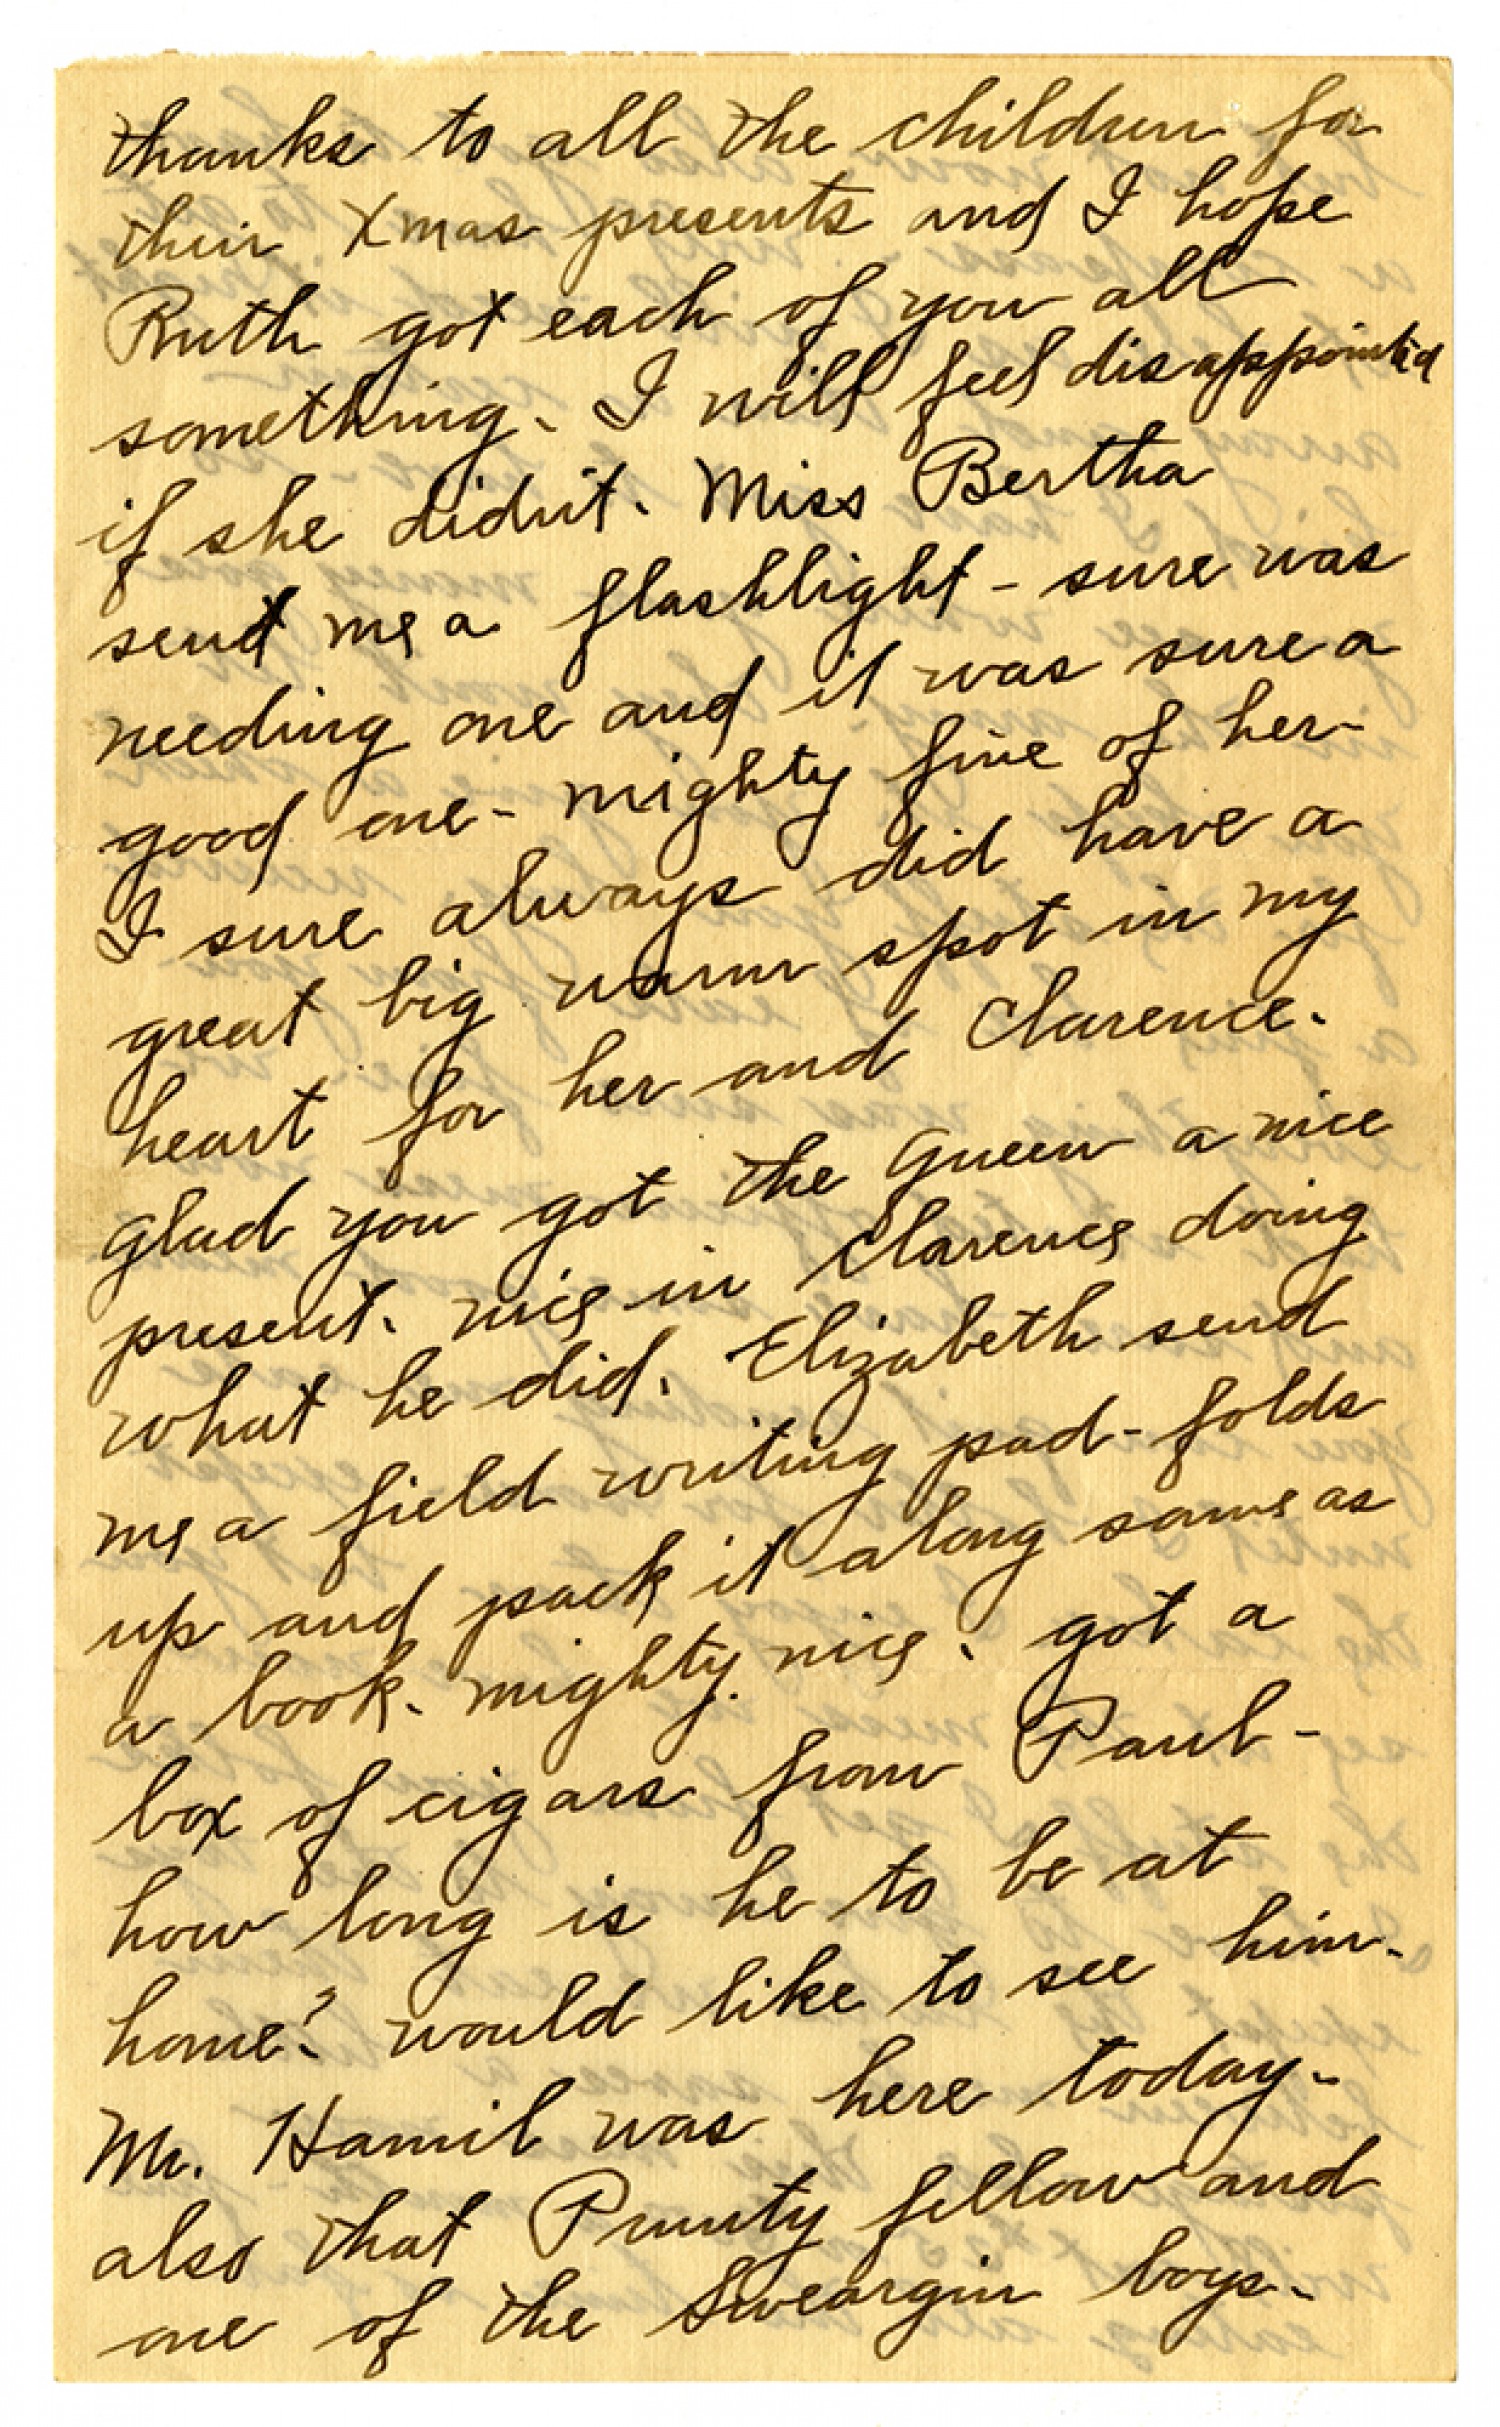 thanks to all the children for
their Xmas presents and I hope
Ruth got each of you all
something. I will feel disappointed
if she didn't. Miss Bertha
send me a flashlight - sure was
needing one and it was sure a
good one - mighty fine of her
I sure always did have a
great big warm spot in my
heart for her and Clarence.
Glad you got the Queen a nice
present. nice in Clarence doing
what he did. Elizabeth send
me a field writing pad - folds
up and pack it along same as
a book. mighty nice. got a
box of cigars from Paul -
how long is he to be at
home? would like to see him.
Mr. Hamil was here today -
also that Prunty fellow and
one of the Sweargin boys.